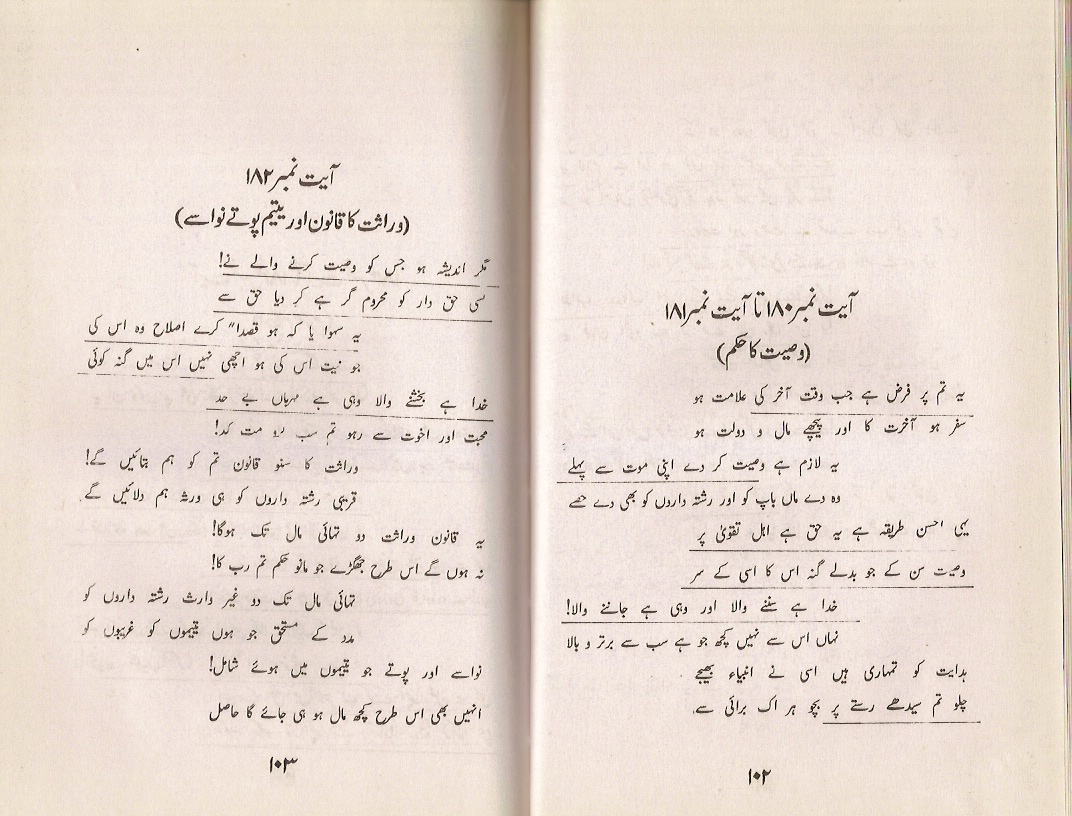 آیت نمبر ۱۸۰ تا آیت نمبر ۱۸۱
(وصیت کا حکم)
یہ تم پر فرض ہے جب وقت آخر کی علامت ہو
سفر ہو آخرت کا اور پیچھے مال و دولت ہو
یہ لازم ہے وصیت کر دے اپنی موت سے پہلے
وہ دے ماں باپ کو اور رشتہ داروں کو بھی دے حصے
یہی احسن طریقہ ہے یہ حق ہے اہل تقویٰ پر
وصیت سن کے جو بدلے گنہ اس کا اسی کے سر
خدا ہے سننے والا اور وہی ہے جاننے والا!
نہاں اس سے نہیں کچھ جو ہے سب سے برتر و بالا
ہدایت کو تمہاری ہیں اسی نے انبیاء بھیجے
چلو تم سیدھے رستے پر بچو ہر اک برائی سے
۱۰۲
آیت نمبر ۱۸۲
(وراثت کا قانون اور یتیم پوتے نواسے)
مگر اندیشہ ہو جس کو وصیت کرنے والے نے!
کسی حق دار کو محروم گر ہے کر دیا حق سے
یہ سہوا یا کہ ہو قصدا" کرے اصلاح وہ اس کی
جو نیت اس کی ہو اچھی نہیں اس میں گنہ کوئی
خدا ہے بخشنے والا وہی ہے مہرباں بے حد
محبت اور اخوت سے رہو تم سب مت کد!
وراثت کا سنو قانون تم کو ہم بتائیں گے!
قریبی رشتہ داروں کو ہی ورثہ ہم دلائیں گے
یہ قانون وراثت دو تہائی مال تک ہوگا!
نہ ہوں گے اس طرح جھگڑے جو مانو حکم تم رب کا!
تہائی مال تک دو غیر وارث رشتہ داروں کو
مدد کے مستحق جو ہوں یتیموں کو غریبوں کو
نواسے اور پوتے جو یتیموں میں ہوئے شامل!
انہیں بھی اس طرح کچھ مال ہو ہی جائے گا حاصل
۱۰۳